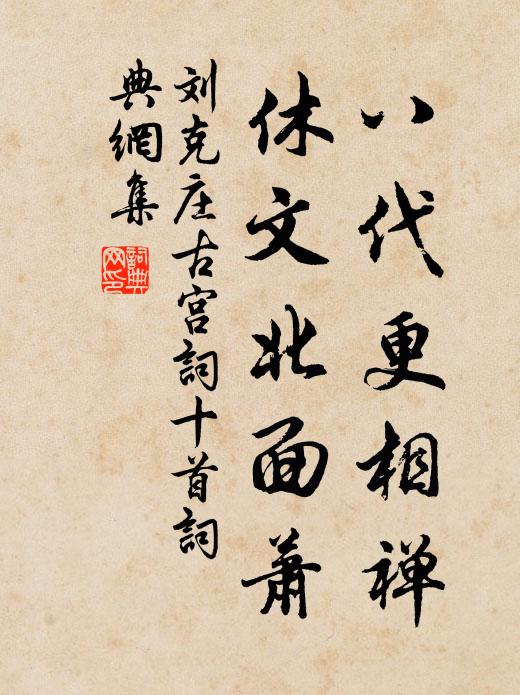 八代更相禅
休文北面萧
刘克庄古宫詞十首詞
典網集
詞典网印